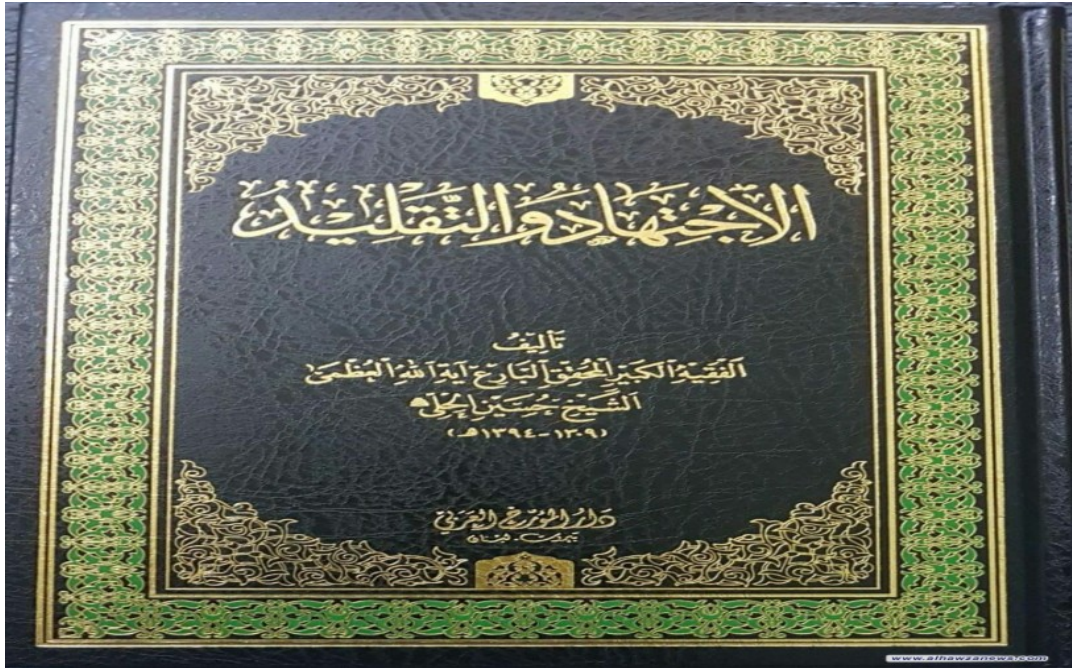 الاجْتِهَادُ وَالتَّقْلِيدُ
تَأليفُ
الفَقِيهِ الكَبِيرِ المُحَقِّقِ البَارِعِ آيَةِ اللهِ العُظْمَى
الشَّيْخِ حُسَيْنِ الحِلِّي
(١٣٠٩-١٣٩٤هـ)
دَارُ المُؤَرِّخِ العَرَبِيّ
بَيْرُوت - لُبْنَان
www.alhawzanews.com